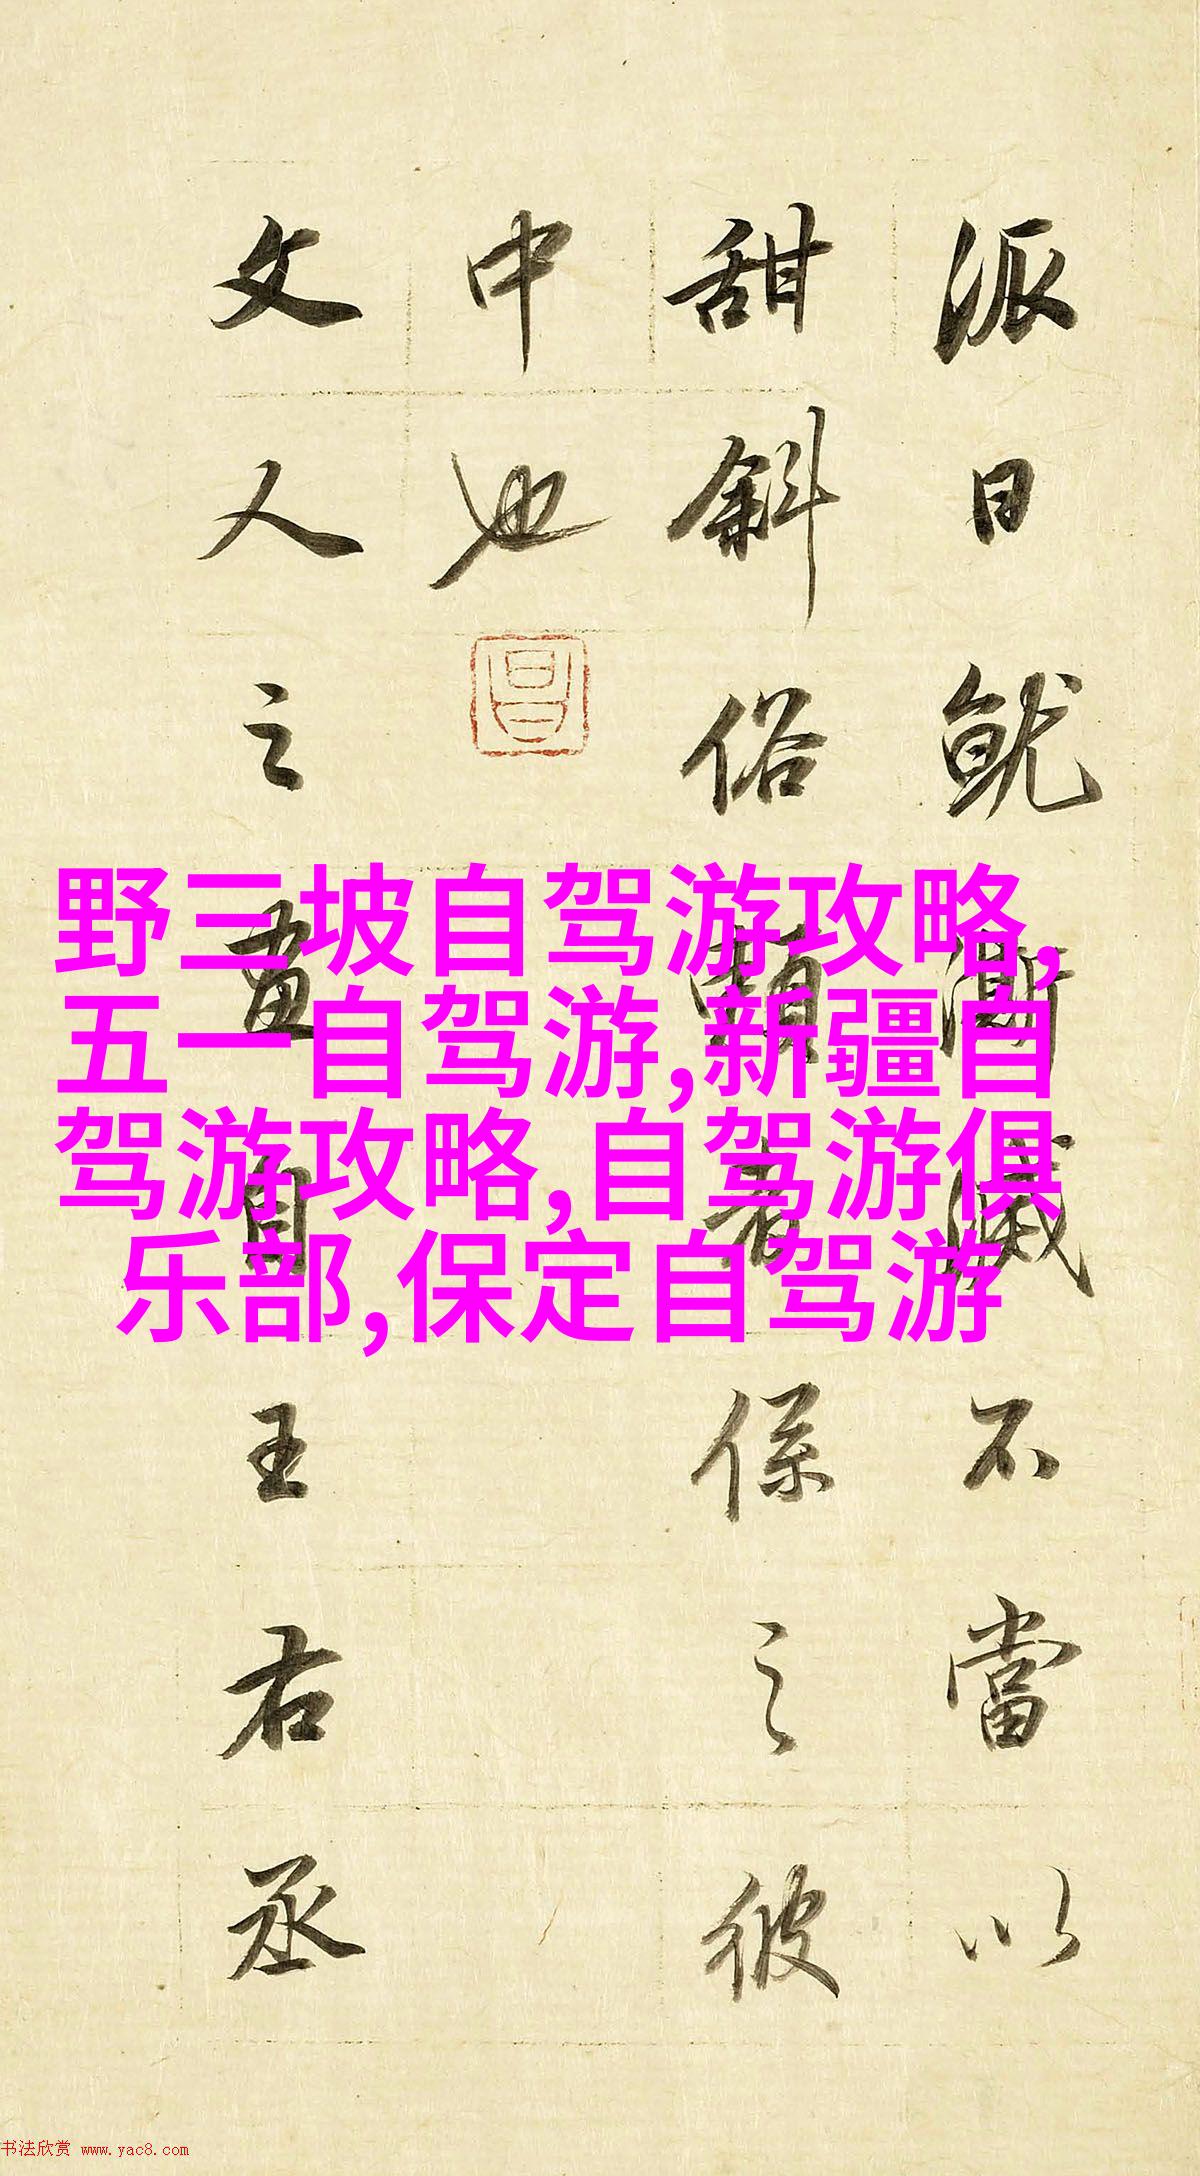 派日就澌滅不當以
甜斜俗賴者係之彼
中也
昌
文人之畫自王右丞
野三坡自驾游攻略,
五一自驾游,新疆自
驾游攻略,自驾游俱
乐部,保定自驾游
书法欣赏 www.yac8.com